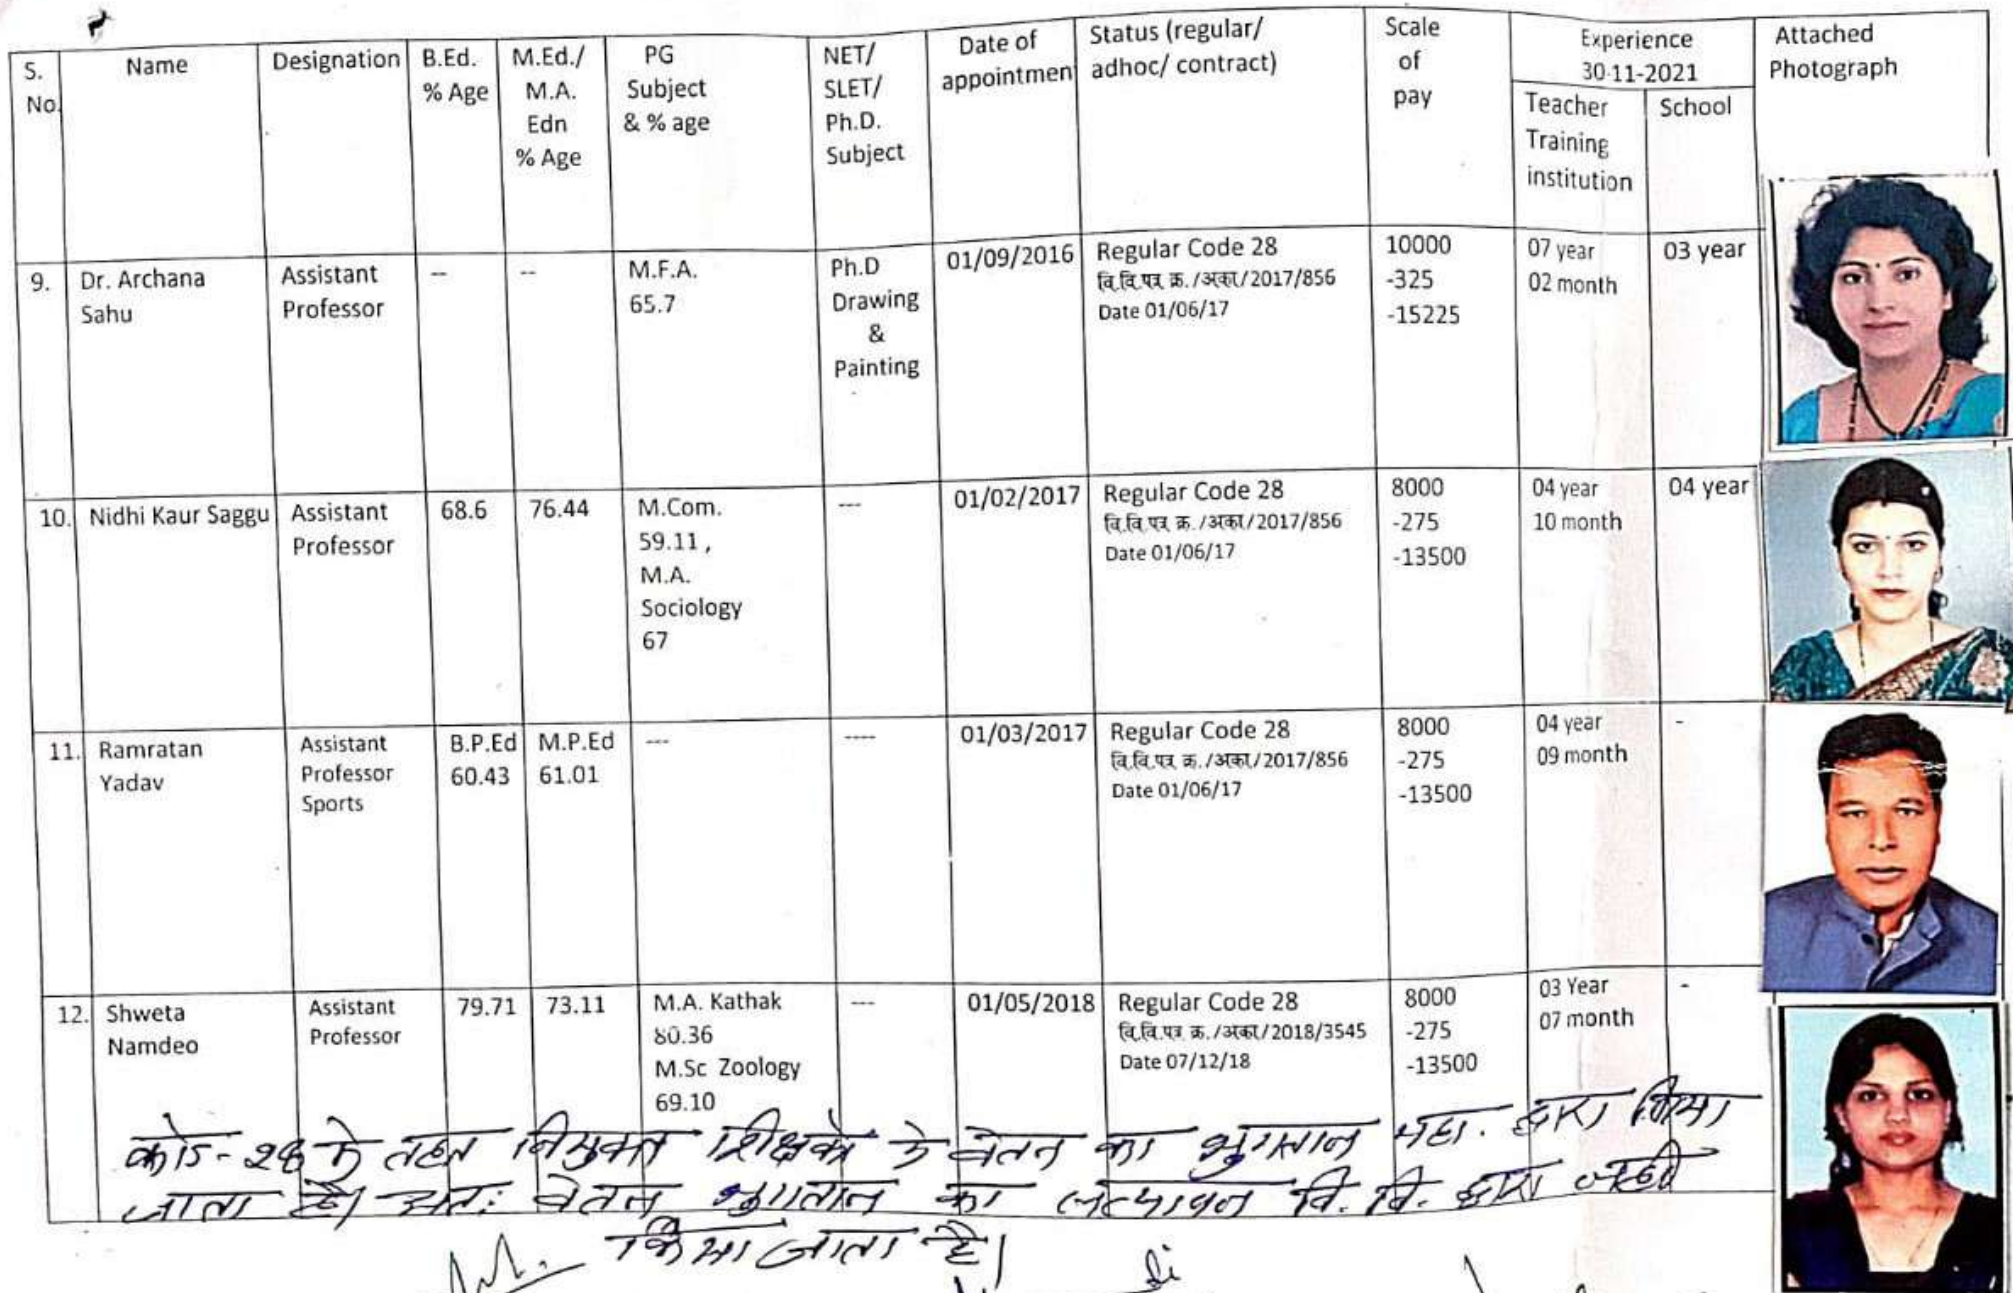 S. No.
Name
Designation
B.Ed. % Age
M.Ed./ M.A. Edn % Age
PG Subject & % age
NET/ SLET/ Ph.D. Subject
Date of appointment
Status (regular/ adhoc/ contract)
Scale of pay
Experience 30-11-2021
Teacher Training institution
School
Attached Photograph
9.
Dr. Archana Sahu
Assistant Professor
--
--
M.F.A. 65.7
Ph.D Drawing & Painting
01/09/2016
Regular Code 28
वि.वि.पत्र क्र./अका/2017/856
Date 01/06/17
10000 -325 -15225
07 year 02 month
03 year
10.
Nidhi Kaur Saggu
Assistant Professor
68.6
76.44
M.Com. 59.11 , M.A. Sociology 67
---
01/02/2017
Regular Code 28
वि.वि.पत्र क्र./अका/2017/856
Date 01/06/17
8000 -275 -13500
04 year 10 month
04 year
11.
Ramratan Yadav
Assistant Professor Sports
B.P.Ed 60.43
M.P.Ed 61.01
---
----
01/03/2017
Regular Code 28
वि.वि.पत्र क्र./अका/2017/856
Date 01/06/17
8000 -275 -13500
04 year 09 month
-
12.
Shweta Namdeo
Assistant Professor
79.71
73.11
M.A. Kathak 80.36 M.Sc Zoology 69.10
---
01/05/2018
Regular Code 28
वि.वि.पत्र क्र./अका/2018/3545
Date 07/12/18
8000 -275 -13500
03 Year 07 month
-
कोड-28 के तहत नियुक्त शिक्षकों के वेतन का भुगतान महा. द्वारा किया
जाता है। अतः वेतन भुगतान का सत्यापन वि. वि. द्वारा नहीं
किया जाता है।